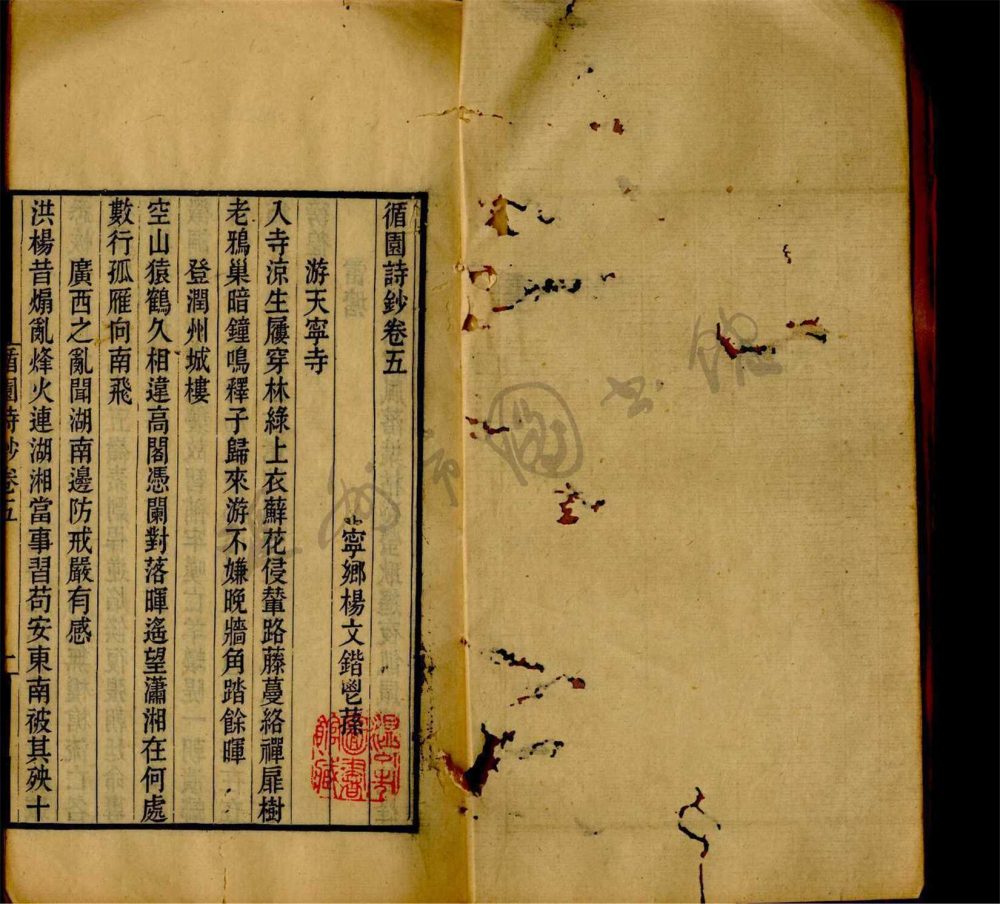 循園詩鈔卷五
寧鄉楊文鍇鬯蓀
游天寧寺
入寺涼生屨穿林綠上衣蘚花侵輦路藤蔓絡禪扉樹
老鴉巢暗鐘鳴釋子歸來游不嫌晚牆角踏餘暉
登潤州城樓
空山猿鶴久相違高閣憑闌對落暉遙望瀟湘在何處
數行孤雁向南飛
廣西之亂聞湖南邊防戒嚴有感
洪楊昔煽亂烽火連湖湘當事習苟安東南被其殃十
循園詩鈔卷五
一
圖書館藏
市圖書館